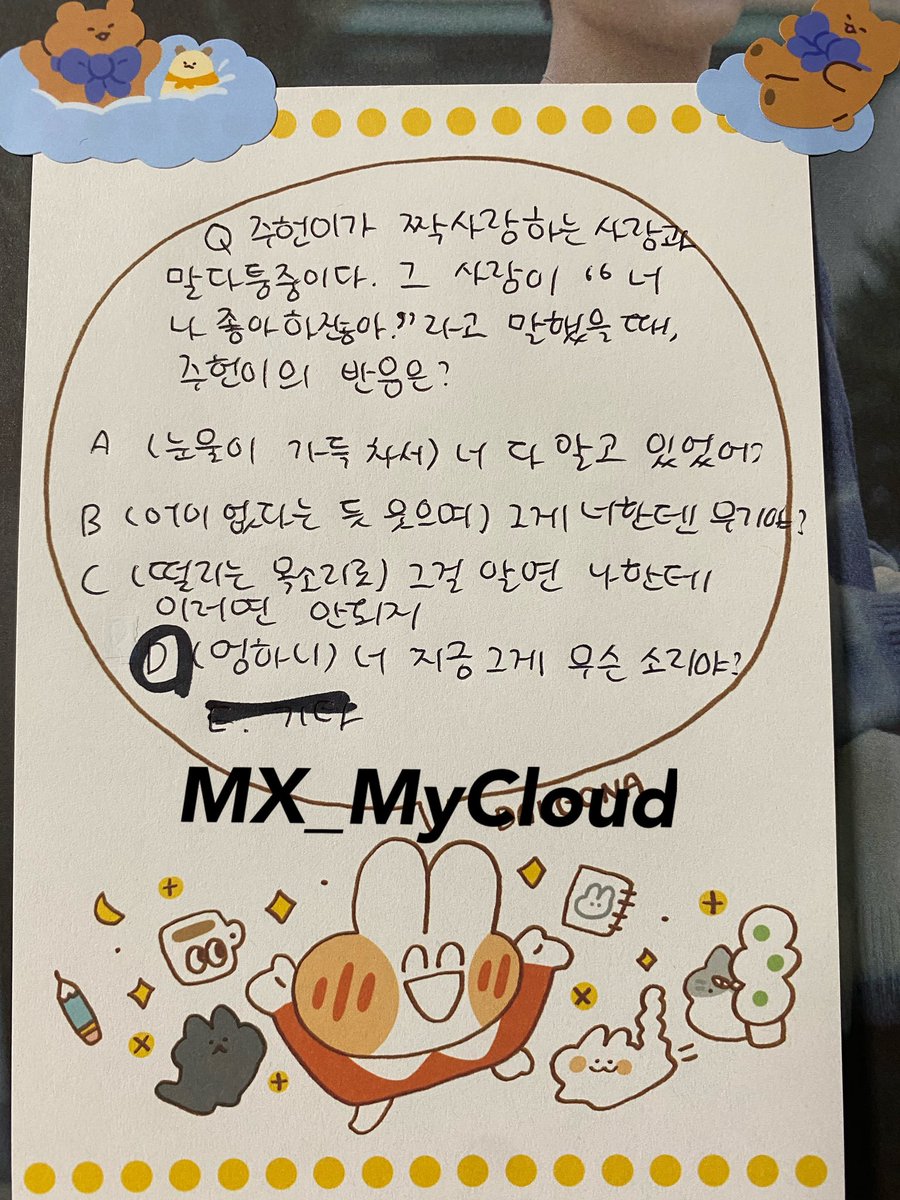 Q 주헌이가 짝사랑하는 사람과
말다툼중이다. 그 사람이 "너
나 좋아하잖아."라고 말했을 때,
주헌이의 반응은?
A (눈물이 가득 차서) 너 다 알고 있었어?
B (어이 없다는 듯 웃으며) 그게 너한텐 무기야?
C (떨리는 목소리로) 그걸 알면 나한테
이러면 안되지
D (멍하니) 너 지금 그게 무슨 소리야?
E. 기타
MX_MyCloud